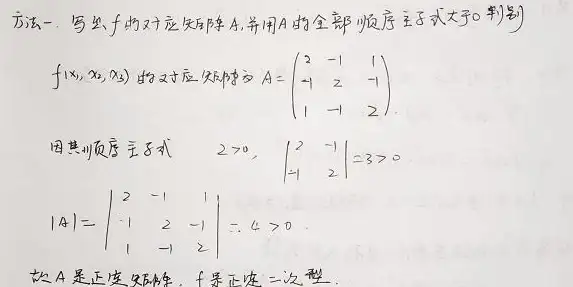 方法一. 写出 f 的对应矩阵A, 并用A的全部顺序主子式大于0判别
f(x₁, x₂, x₃) 的对应矩阵为 A = ( 2 -1 1
-1 2 -1
1 -1 2 ).
因其顺序主子式 2>0, | 2 -1
-1 2 | = 3 > 0
|A| = | 2 -1 1
-1 2 -1
1 -1 2 | = 4 > 0.
故 A 是正定矩阵, f 是正定二次型.